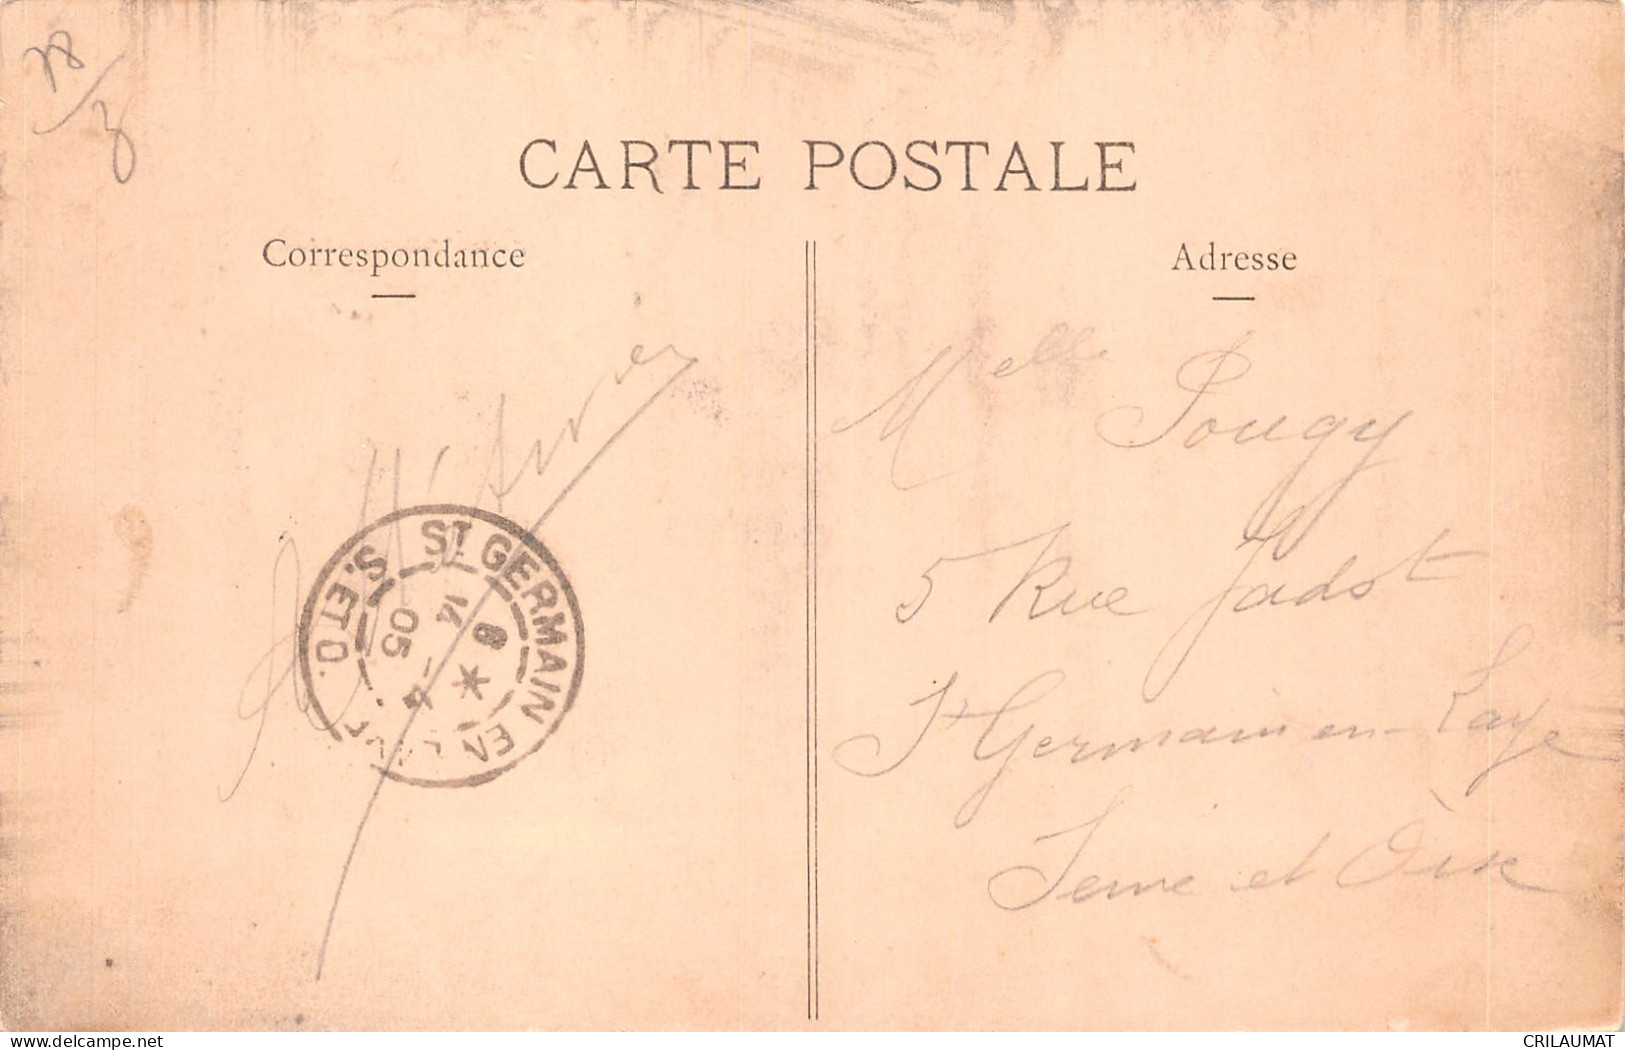 78
3
CARTE POSTALE
Correspondance
Adresse
Melle Pougy
5 Rue Jadot
St Germain en-Laye
Seine et Oise
ST GERMAIN EN LAYE
S. ET O.
8
14
-4
05
delcampe.net
CRILAUMAT